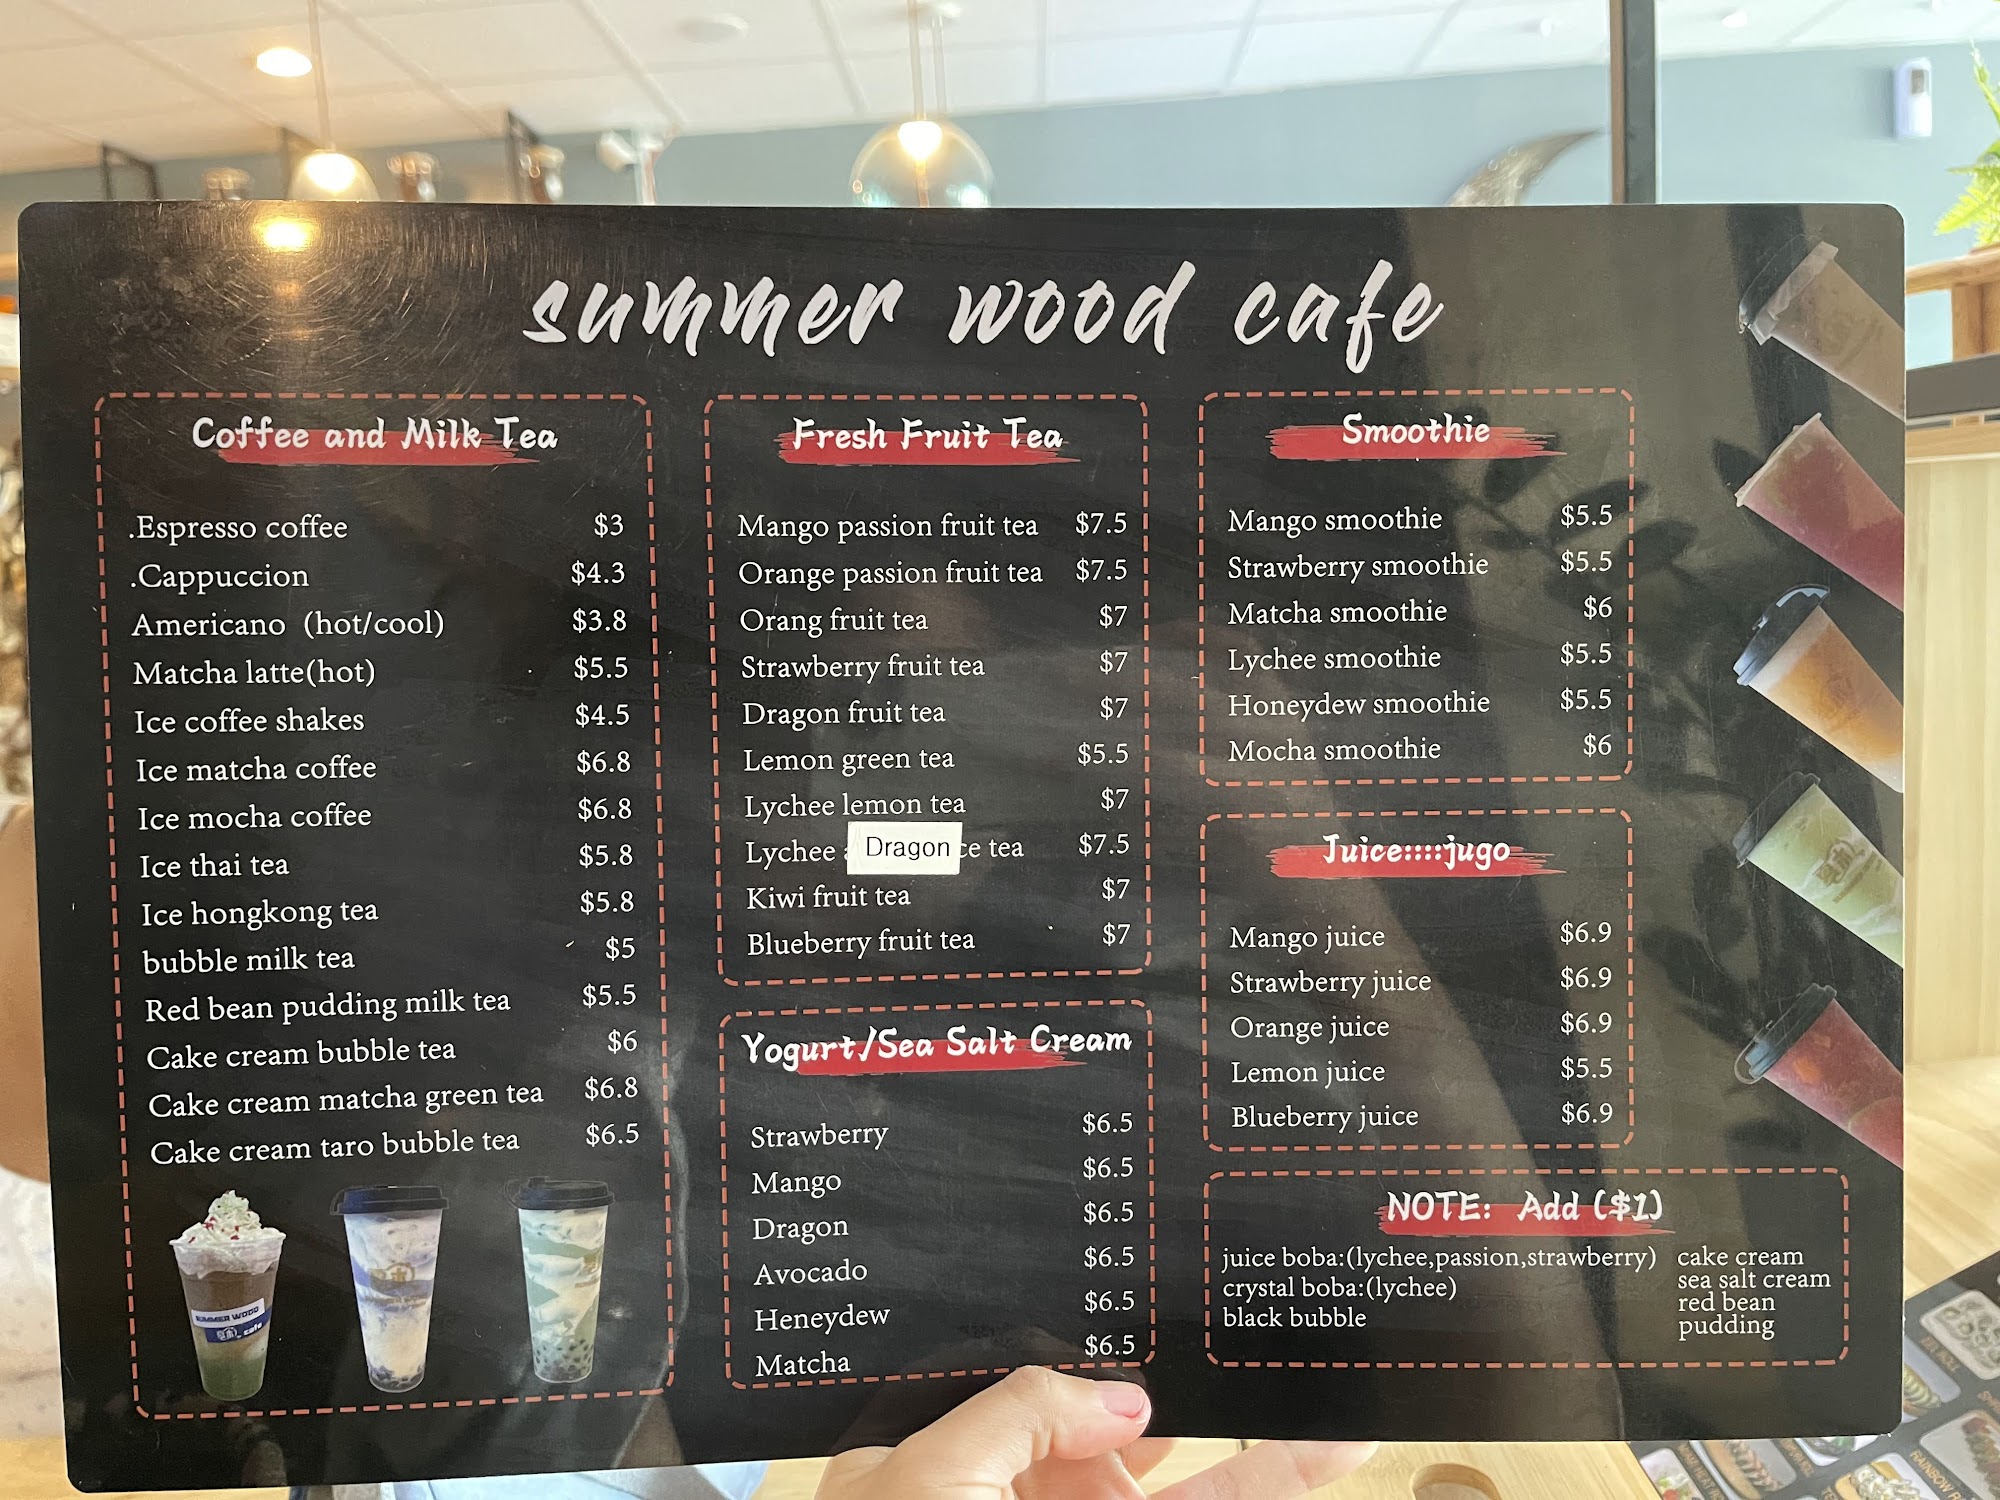 summer wood cafe
Coffee and Milk Tea
.Espresso coffee $3
.Cappuccion $4.3
Americano (hot/cool) $3.8
Matcha latte(hot) $5.5
Ice coffee shakes $4.5
Ice matcha coffee $6.8
Ice mocha coffee $6.8
Ice thai tea $5.8
Ice hongkong tea $5.8
bubble milk tea $5
Red bean pudding milk tea $5.5
Cake cream bubble tea $6
Cake cream matcha green tea $6.8
Cake cream taro bubble tea $6.5
SUMMER WOOD
cafe
Fresh Fruit Tea
Mango passion fruit tea $7.5
Orange passion fruit tea $7.5
Orang fruit tea $7
Strawberry fruit tea $7
Dragon fruit tea $7
Lemon green tea $5.5
Lychee lemon tea $7
Lychee Dragon ce tea $7.5
Kiwi fruit tea $7
Blueberry fruit tea $7
Yogurt/Sea Salt Cream
Strawberry $6.5
Mango $6.5
Dragon $6.5
Avocado $6.5
Heneydew $6.5
Matcha $6.5
Smoothie
Mango smoothie $5.5
Strawberry smoothie $5.5
Matcha smoothie $6
Lychee smoothie $5.5
Honeydew smoothie $5.5
Mocha smoothie $6
Juice::::jugo
Mango juice $6.9
Strawberry juice $6.9
Orange juice $6.9
Lemon juice $5.5
Blueberry juice $6.9
NOTE: Add ($1)
juice boba:(lychee,passion,strawberry)
crystal boba:(lychee)
black bubble
cake cream
sea salt cream
red bean
pudding
RAINBOW